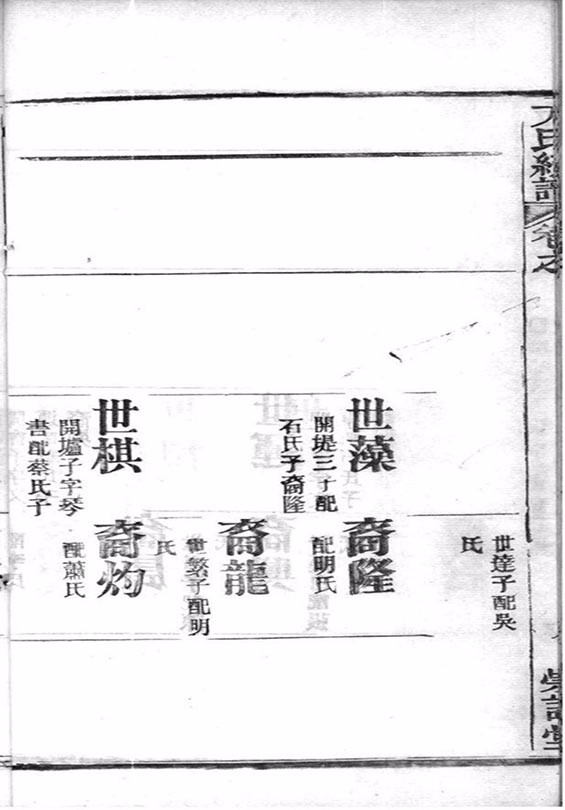 氏經譜
卷之
世達子配吳
氏
世藻
開堤三子配
石氏子裔隆
裔隆
配明氏
裔龍
世繁子配明
氏
世棋
開壚子字琴
書配蔡氏子
裔灼
配蕭氏
堂